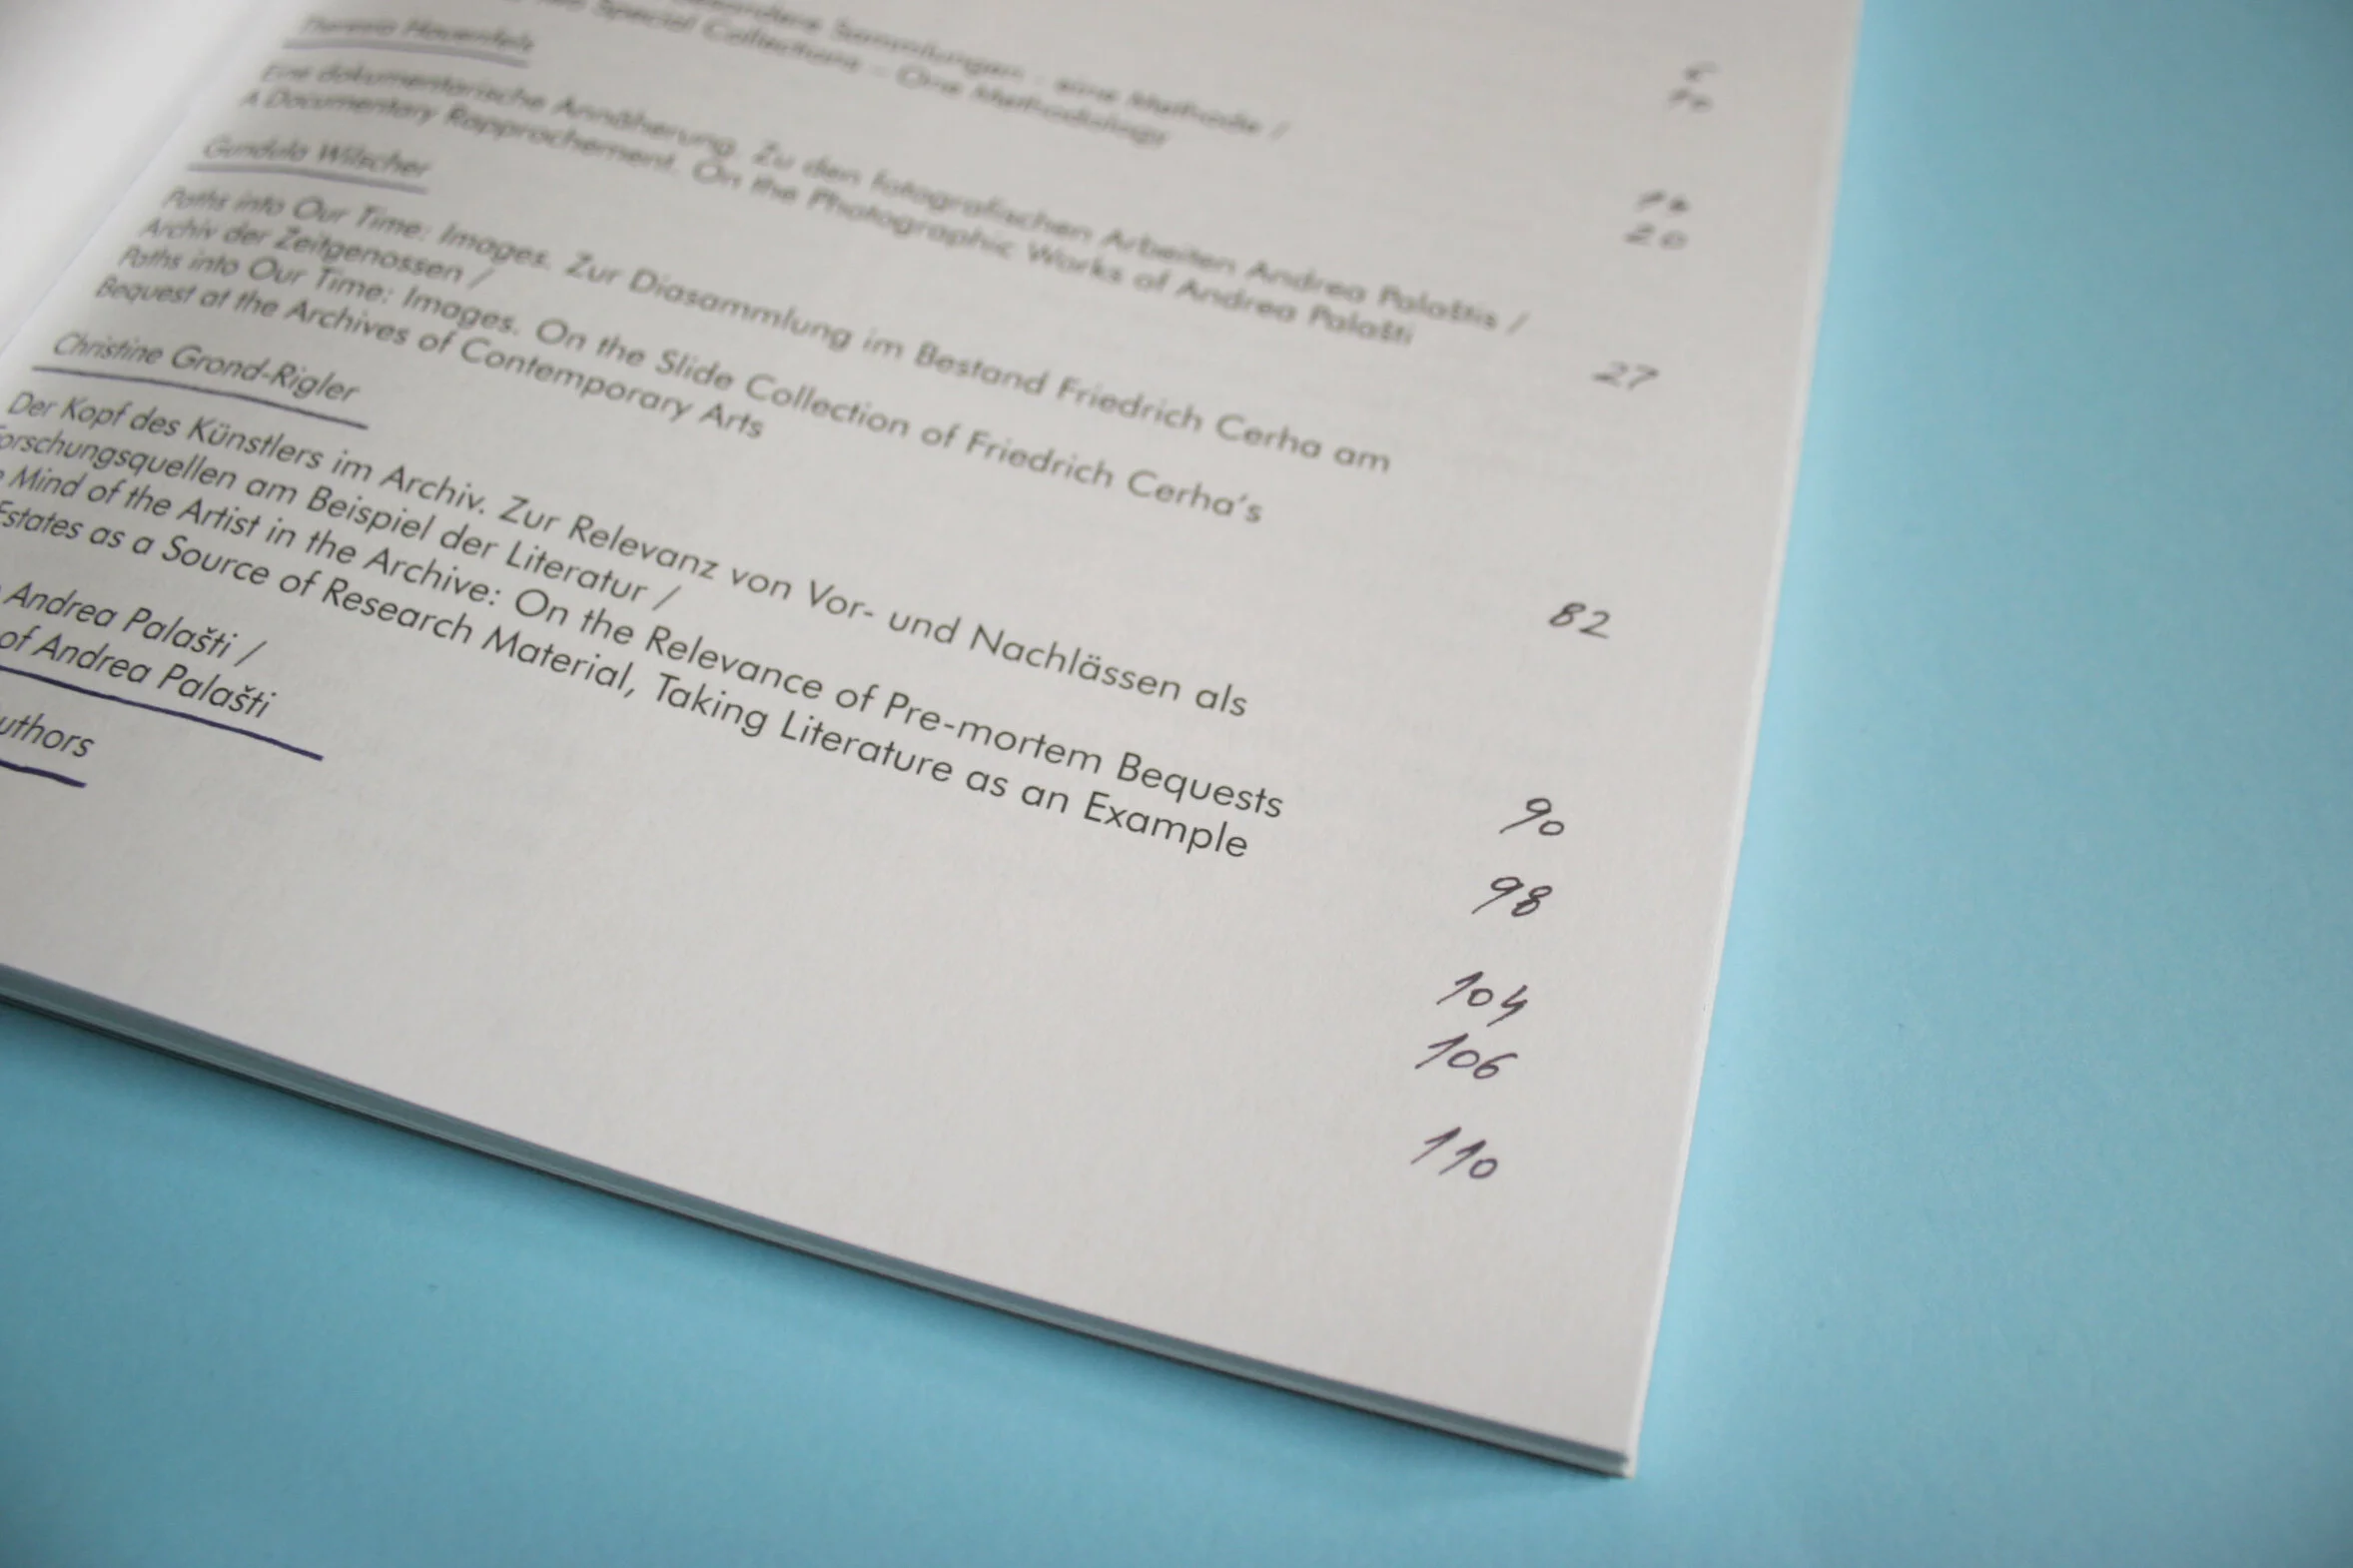 Sammlungen - eine Methode /
Special Collections – One Methodology
Theresia Hauenfels
Eine dokumentarische Annäherung. Zu den fotografischen Arbeiten Andrea Palaštis /
A Documentary Rapprochement. On the Photographic Works of Andrea Palašti
Gundula Wilscher
Paths into Our Time: Images. Zur Diasammlung im Bestand Friedrich Cerha am
Archiv der Zeitgenossen /
Paths into Our Time: Images. On the Slide Collection of Friedrich Cerha's
Bequest at the Archives of Contemporary Arts
Christine Grond-Rigler
Der Kopf des Künstlers im Archiv. Zur Relevanz von Vor- und Nachlässen als
orschungsquellen am Beispiel der Literatur /
Mind of the Artist in the Archive: On the Relevance of Pre-mortem Bequests
Estates as a Source of Research Material, Taking Literature as an Example
Andrea Palašti /
of Andrea Palašti
uthors
20
27
82
90
98
104
106
110